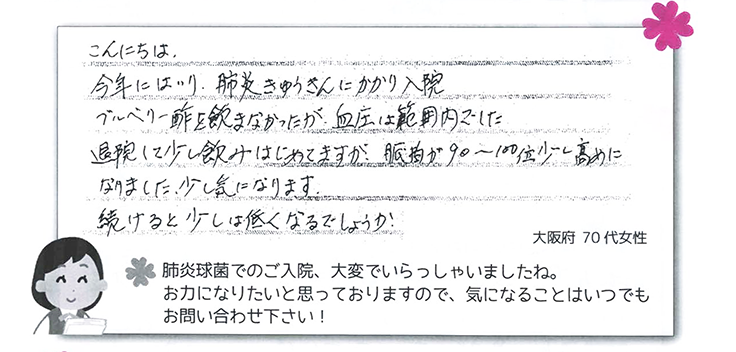 こんにちは.
今年にはいり.肺炎きゅうきんにかかり入院
ブルベリー酢を飲まなかったが.血圧は範囲内でした
退院して少し飲みはじめてますが.脈拍が90〜100位少し高めに
なりました.少し気になります.
続けると少しは低くなるでしょうか
大阪府 70代女性
肺炎球菌でのご入院、大変でいらっしゃいましたね。
お力になりたいと思っておりますので、気になることはいつでも
お問い合わせ下さい！